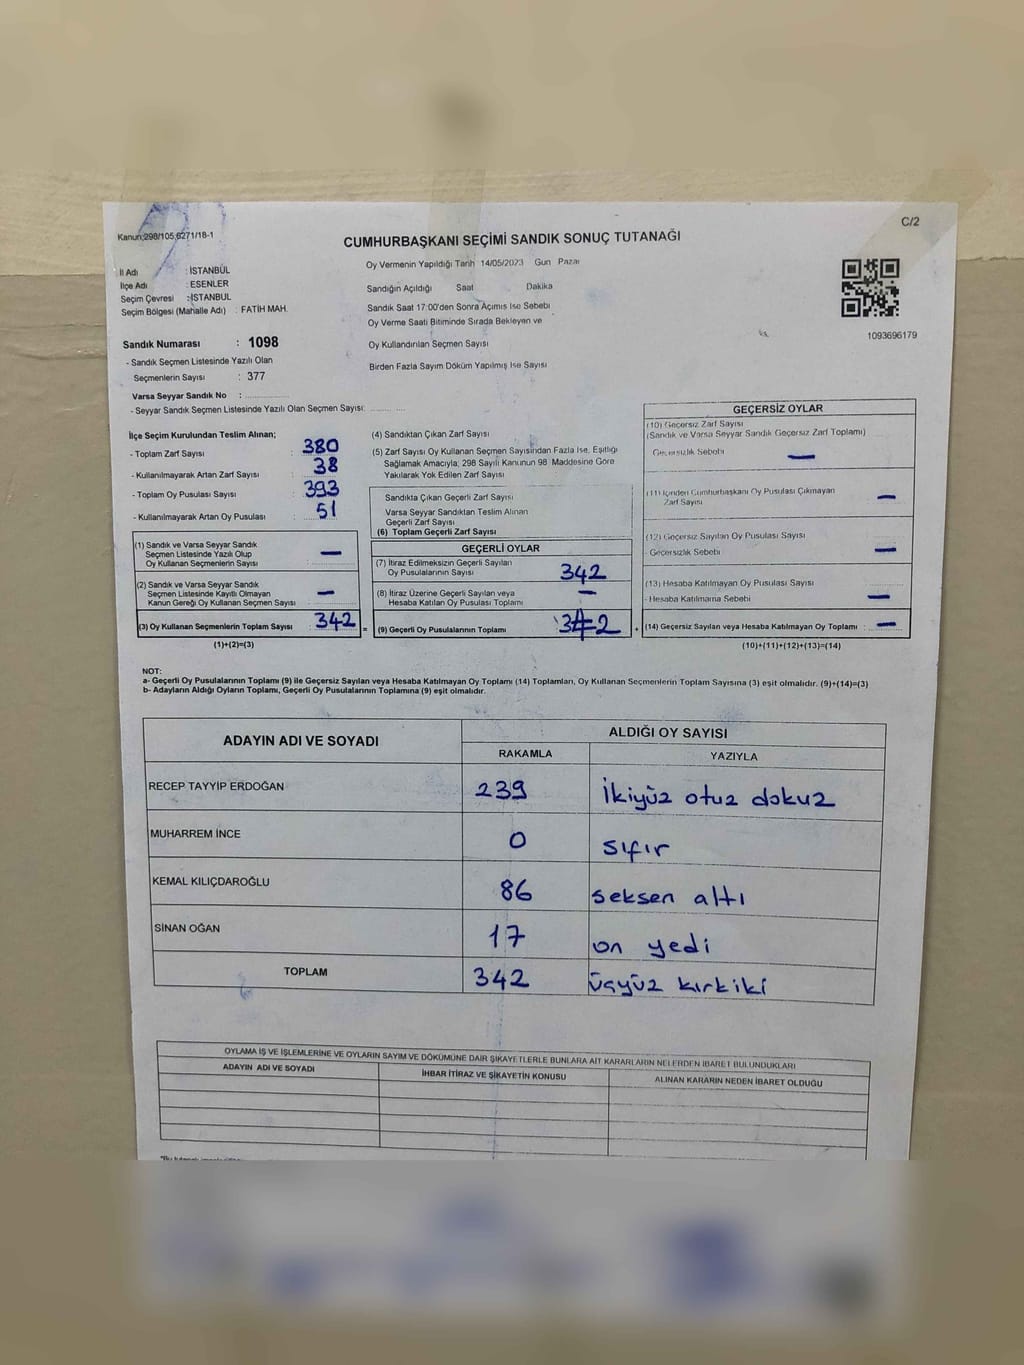 C/2
Kanun:298/105,6271/18-1
CUMHURBAŞKANI SEÇİMİ SANDIK SONUÇ TUTANAĞI
İl Adı : İSTANBUL
İlçe Adı : ESENLER
Seçim Çevresi : İSTANBUL
Seçim Bölgesi (Mahalle Adı) : FATİH MAH.
Oy Vermenin Yapıldığı Tarih 14/05/2023 Gun Pazar
Sandığın Açıldığı Saat Dakika
Sandık Saat 17:00'den Sonra Açımış Ise Sebebi
Oy Verme Saati Bitiminde Sırada Bekleyen ve
Oy Kullandırılan Seçmen Sayısı
Birden Fazla Sayım Döküm Yapılmış Ise Sayısı
1093696179
Sandık Numarası : 1098
- Sandık Seçmen Listesinde Yazılı Olan
Seçmenlerin Sayısı : 377
Varsa Seyyar Sandık No :
- Seyyar Sandık Seçmen Listesinde Yazılı Olan Seçmen Sayısı:
İlçe Seçim Kurulundan Teslim Alınan;
- Toplam Zarf Sayısı : 380
- Kullanılmayarak Artan Zarf Sayısı : 38
- Toplam Oy Pusulası Sayısı : 393
- Kullanılmayarak Artan Oy Pusulası : 51
(1) Sandık ve Varsa Seyyar Sandık
Seçmen Listesinde Yazılı Olup
Oy Kullanan Seçmenlerin Sayısı : —
(2) Sandık ve Varsa Seyyar Sandık
Seçmen Listesinde Kayıtlı Olmayan
Kanun Gereği Oy Kullanan Seçmen Sayısı : —
(3) Oy Kullanan Seçmenlerin Toplam Sayısı 342 =
(1)+(2)=(3)
(4) Sandıktan Çıkan Zarf Sayısı
(5) Zarf Sayısı Oy Kullanan Seçmen Sayısından Fazla Ise, Eşitliği
Sağlamak Amacıyla; 298 Sayılı Kanunun 98 Maddesine Göre
Yakılarak Yok Edilen Zarf Sayısı
Sandıkta Çıkan Geçerli Zarf Sayısı
Varsa Seyyar Sandıktan Teslim Alınan
Geçerli Zarf Sayısı
(6) Toplam Geçerli Zarf Sayısı
GEÇERLİ OYLAR
(7) İtiraz Edilmeksizin Geçerli Sayılan
Oy Pusulalarının Sayısı 342
(8) İtiraz Üzerine Geçerli Sayılan veya
Hesaba Katılan Oy Pusulası Toplamı —
(9) Geçerli Oy Pusulalarının Toplamı 342 +
GEÇERSİZ OYLAR
(10) Geçersiz Zarf Sayısı
(Sandık ve Varsa Seyyar Sandık Geçersiz Zarf Toplamı)
Geçersizlik Sebebi —
(11) İçinden Cumhurbaşkanı Oy Pusulası Çıkmayan
Zarf Sayısı —
(12) Geçersiz Sayılan Oy Pusulası Sayısı
- Geçersizlik Sebebi —
(13) Hesaba Katılmayan Oy Pusulası Sayısı
- Hesaba Katılmama Sebebi —
(14) Geçersiz Sayılan veya Hesaba Katılmayan Oy Toplamı : —
(10)+(11)+(12)+(13)=(14)
NOT:
a- Geçerli Oy Pusulasının Toplamı (9) ile Geçersiz Sayılan veya Hesaba Katılmayan Oy Toplamı (14) Toplamları, Oy Kullanan Seçmenlerin Toplam Sayısına (3) eşit olmalıdır. (9)+(14)=(3)
b- Adayların Aldığı Oyların Toplamı, Geçerli Oy Pusulalarının Toplamına (9) eşit olmalıdır.
ADAYIN ADI VE SOYADI
ALDIĞI OY SAYISI
RAKAMLA YAZIYLA
RECEP TAYYİP ERDOĞAN 239 İkiyüz otuz dokuz
MUHARREM İNCE 0 sıfır
KEMAL KILIÇDAROĞLU 86 seksen altı
SİNAN OĞAN 17 on yedi
TOPLAM 342 üçyüz kırkiki
OYLAMA İŞ VE İŞLEMLERİNE VE OYLARIN SAYIM VE DÖKÜMÜNE DAİR ŞİKAYETLERLE BUNLARA AİT KARARLARIN NELERDEN İBARET BULUNDUKLARI
ADAYIN ADI VE SOYADI
İHBAR İTİRAZ VE ŞİKAYETİN KONUSU
ALINAN KARARIN NEDEN İBARET OLDUĞU